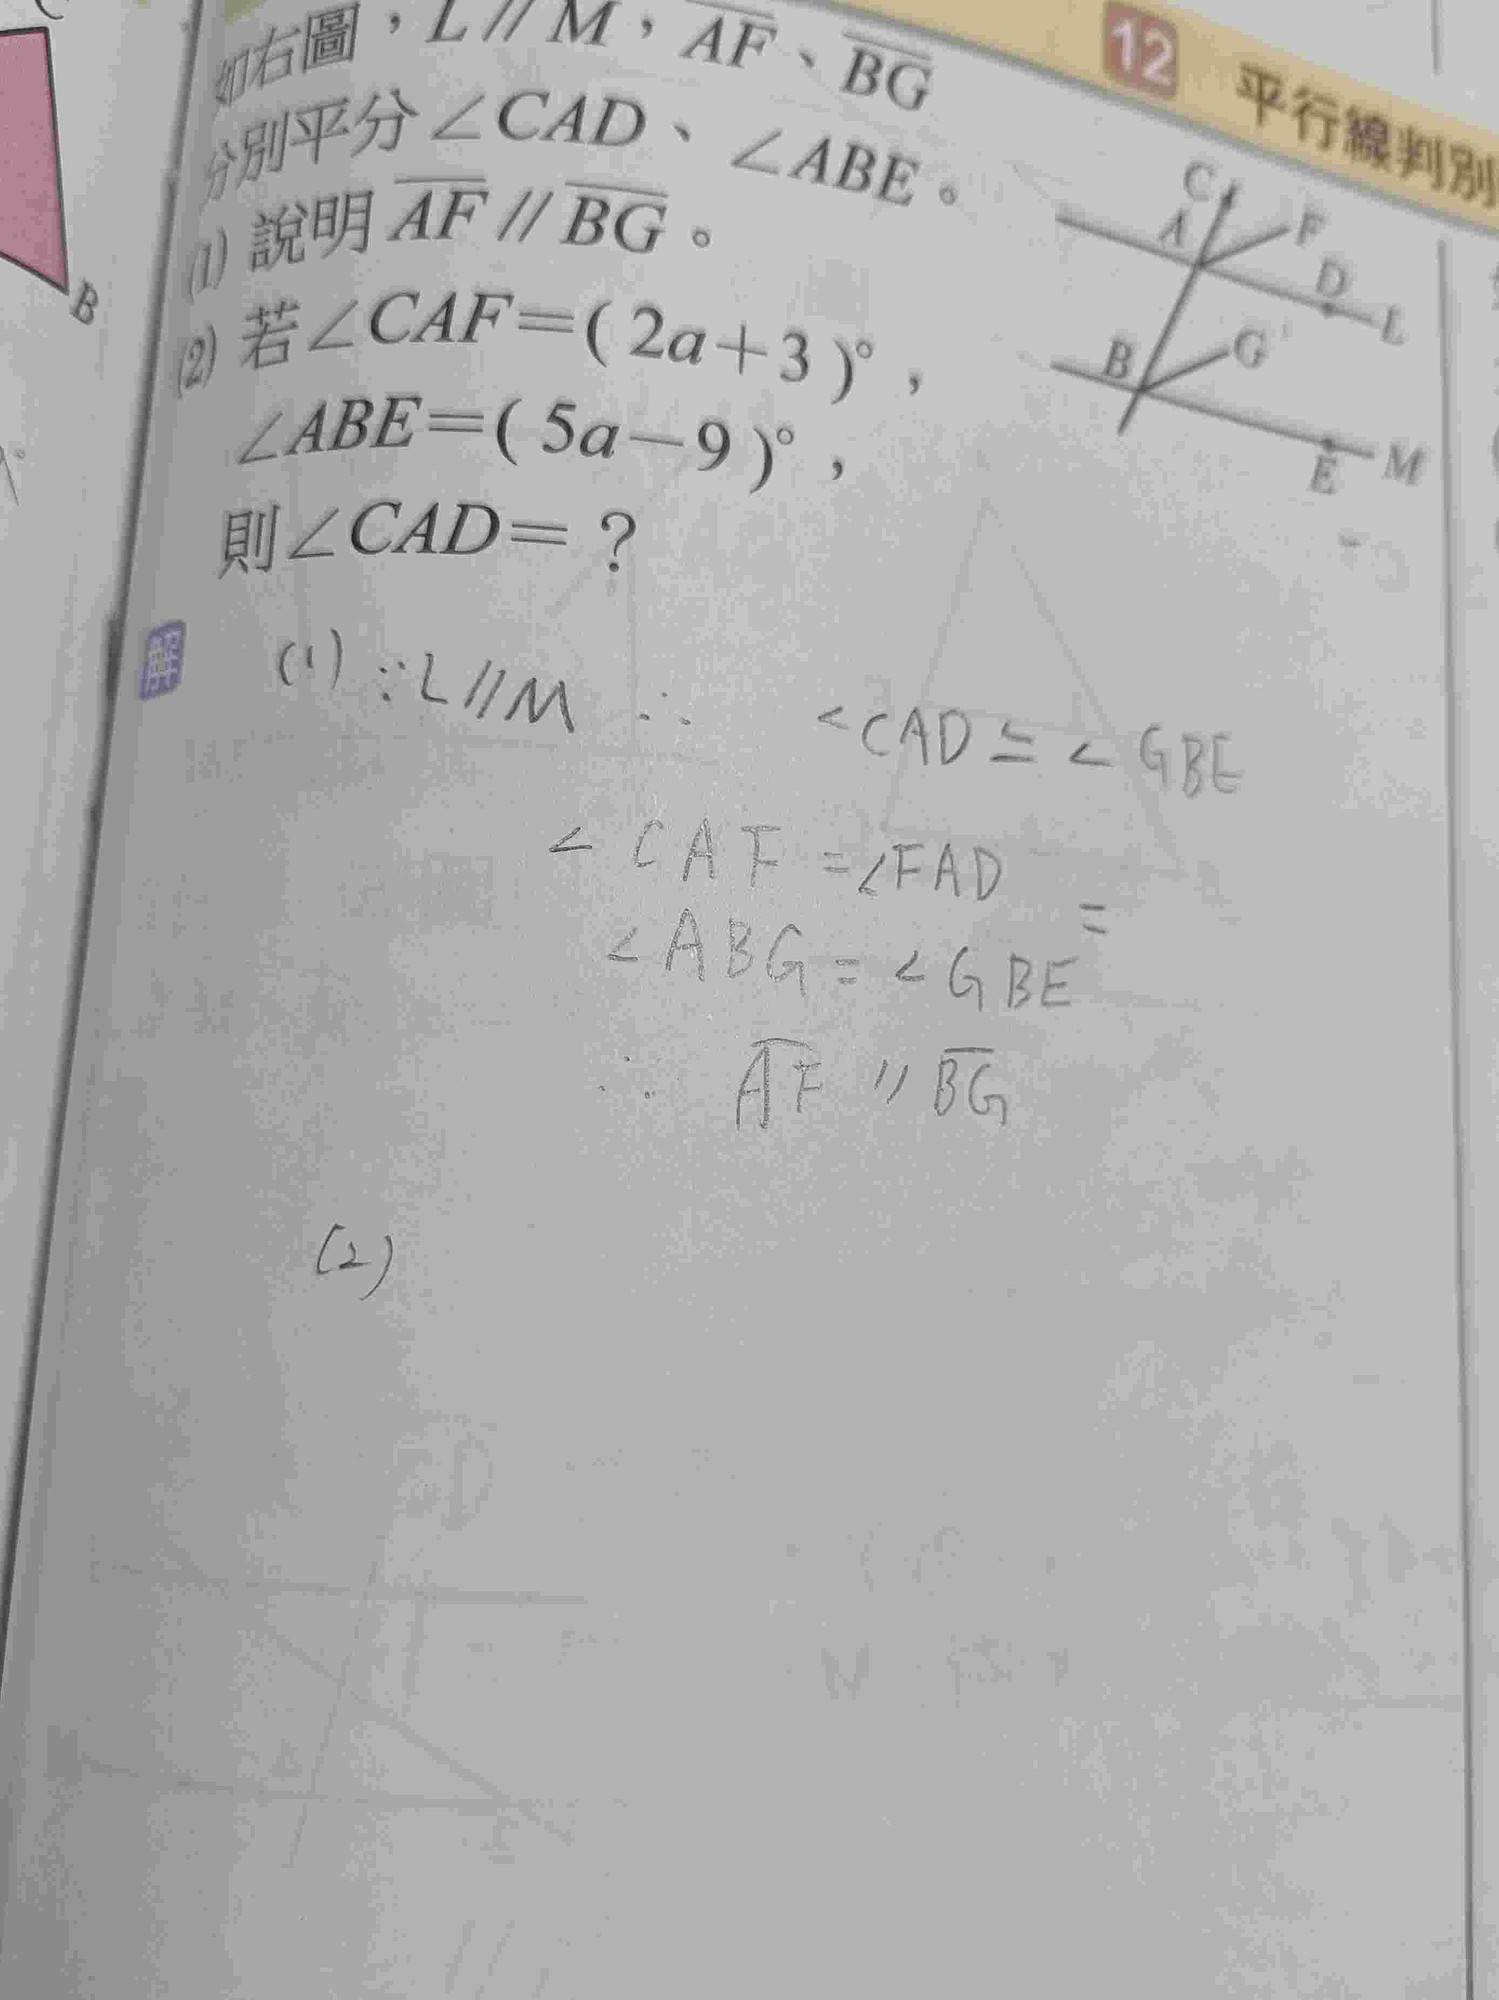 12 平行線判別
如右圖，L∥M，AF、BG
分別平分∠CAD、∠ABE。
(1) 說明AF∥BG。
(2) 若∠CAF=(2a+3)°，
∠ABE=(5a-9)°，
則∠CAD=？
C
A
F
D
L
B
G
E
M
B
解
(1) ∵L∥M ∴ ∠CAD≅∠GBE
∠CAF=∠FAD
=
∠ABG=∠GBE
∴ AF∥BG
(2)